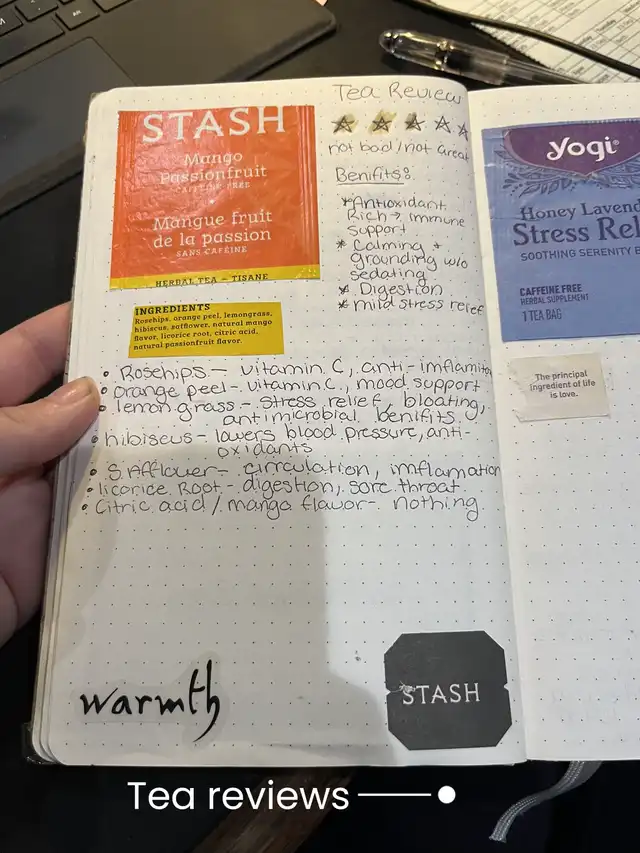 STASH
Mango
Passionfruit
CAFFEINE-FREE
Mangue fruit
de la passion
SANS CAFÉINE
HERBAL TEA – TISANE
INGREDIENTS
Rosehips, orange peel, lemongrass,
hibiscus, safflower, natural mango
flavor, licorice root, citric acid,
natural passionfruit flavor.
Tea Review
not bad/not great
Benifits:
*Antioxidant
Rich → immune
support
* Calming +
grounding w/o
sedating
* Digestion
* mild stress relief
• Rosehips – vitamin C, anti-imflamitor
• orange peel – vitamin C, mood support
• lemon grass – stress relief, bloating,
antimicrobial benifits
• hibiscus – lowers blood pressure, anti-
oxidants
• Safflower – circulation, imflamation
• licorice Root – digestion, sore throat
• Citric acid/mango flavor – nothing
warmth
STASH
yogi®
Honey Lavend
Stress Rel
SOOTHING SERENITY B
CAFFEINE FREE
HERBAL SUPPLEMENT
1 TEA BAG
The principal
ingredient of life
is love.
Tea reviews